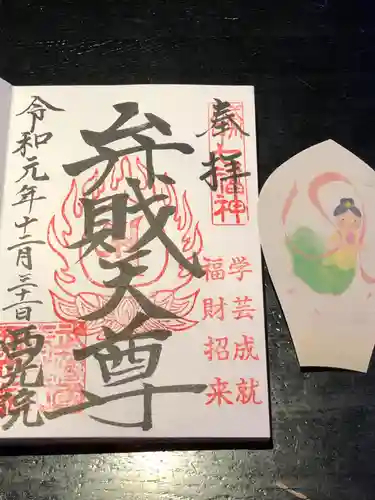 奉拝
七福神
弁財天尊
学芸成就
福財招来
令和元年十二月三十一日
西光院